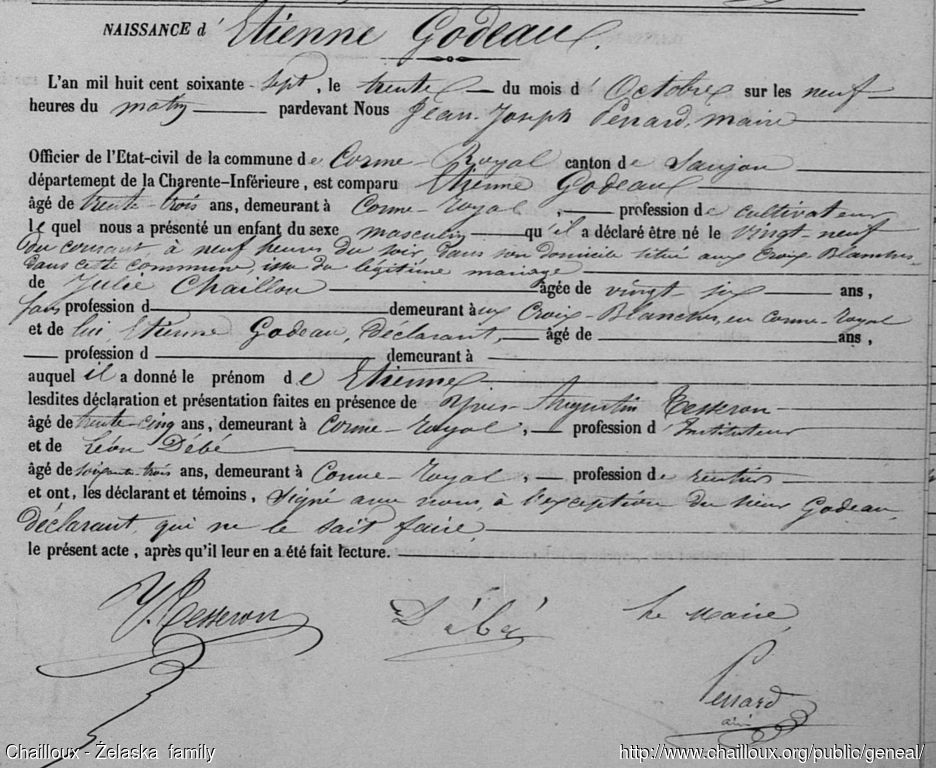 NAISSANCE d' Etienne Godeau.
L'an mil huit cent soixante-sept, le trente du mois d'Octobre sur les neuf
heures du matin pardevant Nous Jean-Joseph Penard, maire
Officier de l'Etat-civil de la commune de Corme-Royal canton de Saujon
département de la Charente-Inférieure, est comparu Etienne Godeau
âgé de trente-trois ans, demeurant à Corme-Royal, profession de cultivateur
lequel nous a présenté un enfant du sexe masculin qu'il a déclaré être né le vingt-neuf
du courant à neuf heures du soir dans son domicile situé aux Croix-Blanches
dans cette commune, issu du légitime mariage
de Julie Chaillou âgée de vingt-six ans,
sans profession d demeurant aux Croix-Blanches, en Corme-Royal
et de lui, Etienne Godeau, déclarant, âgé de ans,
profession d demeurant à
auquel il a donné le prénom de Etienne
lesdites déclaration et présentation faites en présence de Tesseron
âgé de trente-cinq ans, demeurant à Corme-Royal, profession d'Instituteur
et de Léon Débé
âgé de soixante-trois ans, demeurant à Corme-Royal, profession de rentier
et ont, les déclarant et témoins, signé avec nous, à l'exception du sieur Godeau,
déclarant, qui ne le sait faire,
le présent acte, après qu'il leur en a été fait lecture.
Y. Tesseron Débé Le Maire,
Penard
Chailloux - Żelaska family http://www.chailloux.org/public/geneal/